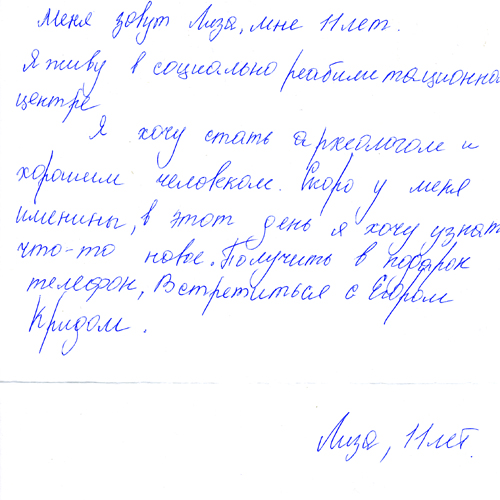 Меня зовут Лиза, мне 11 лет.
Я живу в социально реабилитационно
центре
Я хочу стать археологом и
хорошим человеком. Скоро у меня
именины, в этот день я хочу узнать
что-то новое. Получить в подарок
телефон, Встретиться с Егором
Кридом.
Лиза, 11 лет.